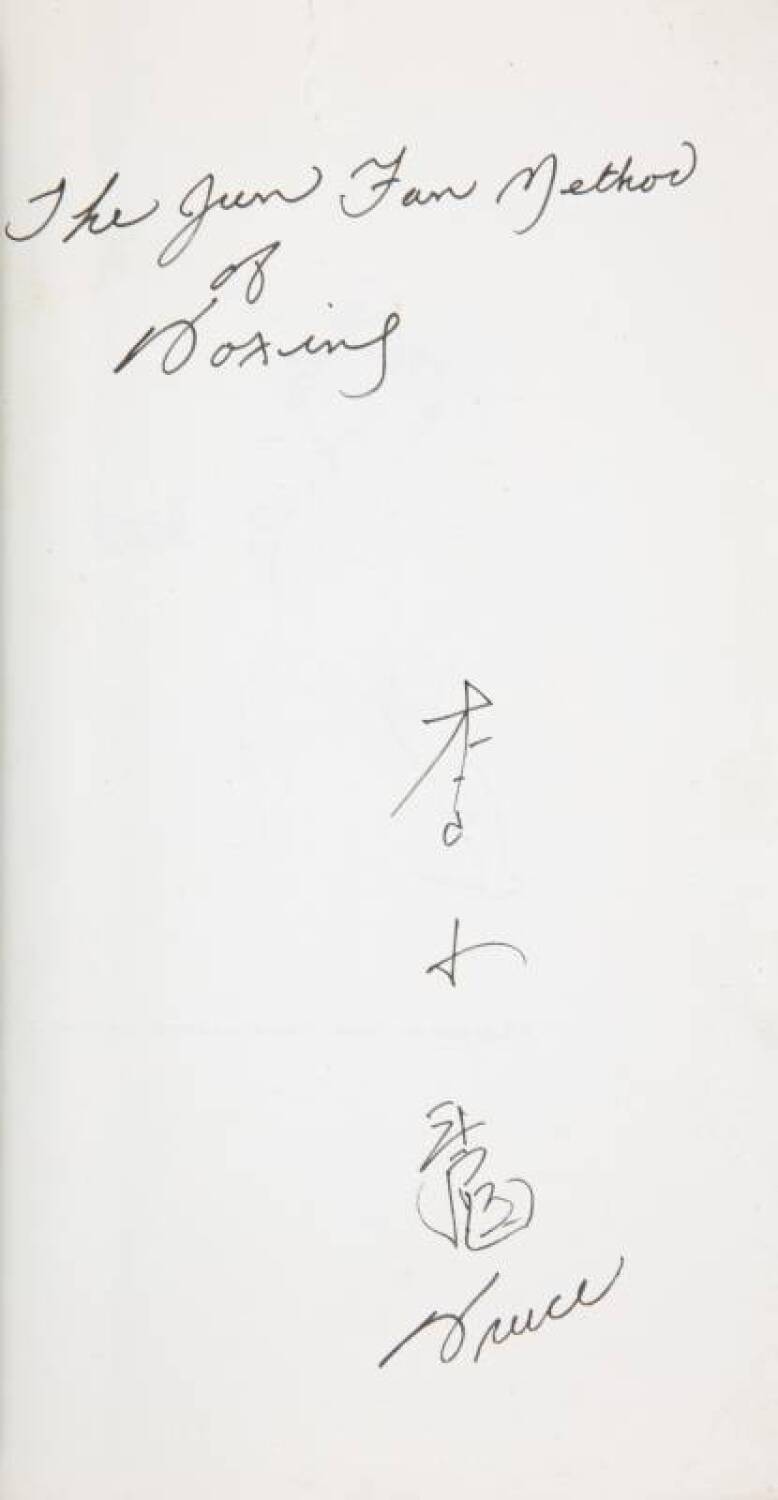 The Jun Fan Method
of
Boxing
李
小
龍
Bruce